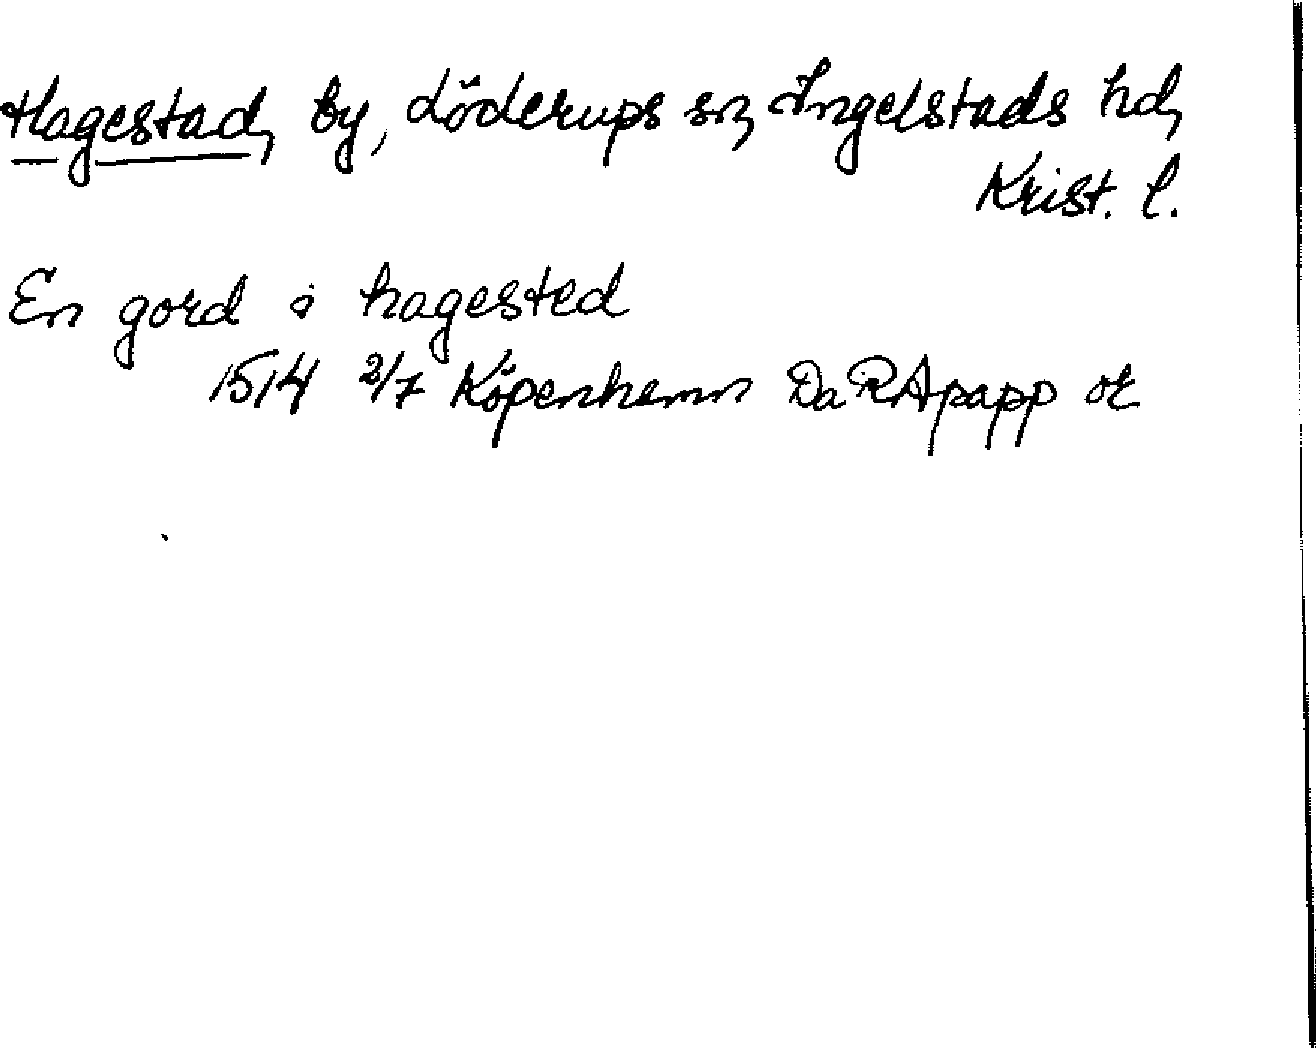 Hagestad, by, Löderups sn, Ingelstads hd,
Krist. l.
En gord i hagested
1514 2/7 Köpenhamn DaRApapp or